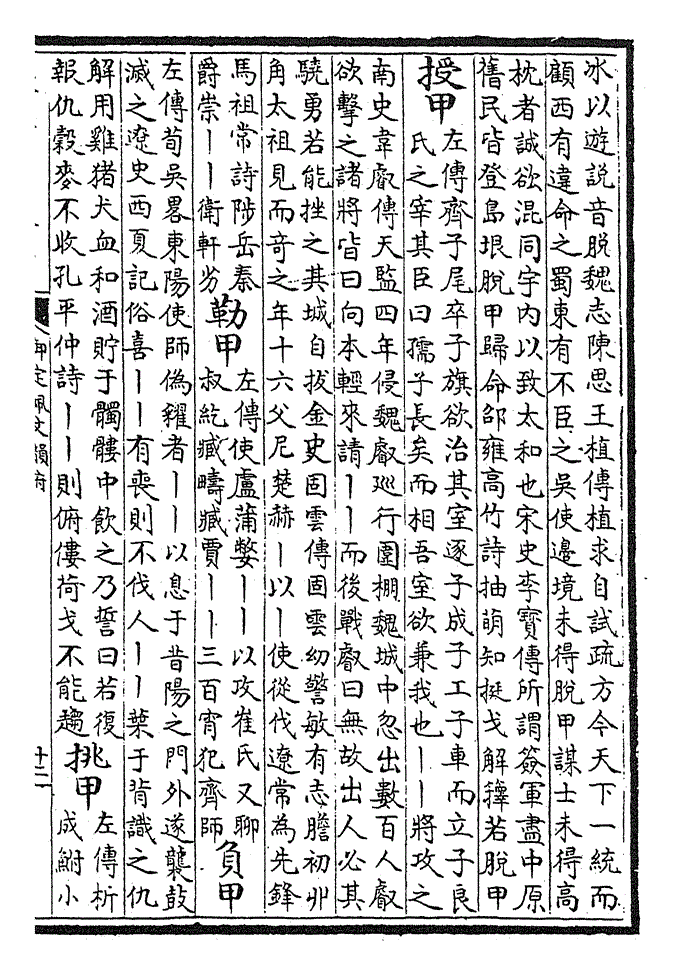 冰以遊說音脫魏志陳思王植傳植求自試疏方今天下一統而
顧西有違命之蜀東有不臣之吳使邊境未得脫甲謀士未得高
枕者誠欲混同宇內以致太和也宋史李寶傳所謂簽軍盡中原
舊民皆登島垠脫甲歸命邵雍高竹詩抽萌知挺戈解籜若脫甲
授甲
左傳齊子尾卒子旗欲治其室逐子成子工子車而立子良
氏之宰其臣曰孺子長矣而相吾室欲兼我也丨丨將攻之
南史韋叡傳天監四年侵魏叡巡行圍柵魏城中忽出數百人叡
欲擊之諸將皆曰向本輕來請丨丨而後戰叡曰無故出人必其
驍勇若能挫之其城自拔金史固雲傳固雲幼警敏有志膽初丱
角太祖見而奇之年十六父尼楚赫丨以丨使從伐遼常為先鋒
馬祖常詩陟岳秦
爵崇丨丨衛軒劣
勒甲
左傳使盧蒲嫳丨丨以攻崔氏又聊
叔紇臧疇臧賈丨丨三百宵犯齊師
負甲
左傳荀吳畧東陽使師偽糴者丨丨以息于昔陽之門外遂襲鼓
滅之遼史西夏記俗喜丨丨有喪則不伐人丨丨葉于背識之仇
解用雞猪犬血和酒貯于髑髏中飲之乃誓曰若復
報仇穀麥不收孔平仲詩丨丨則俯僂荷戈不能趨
挑甲
左傳析
成鮒小
御定佩文韻府